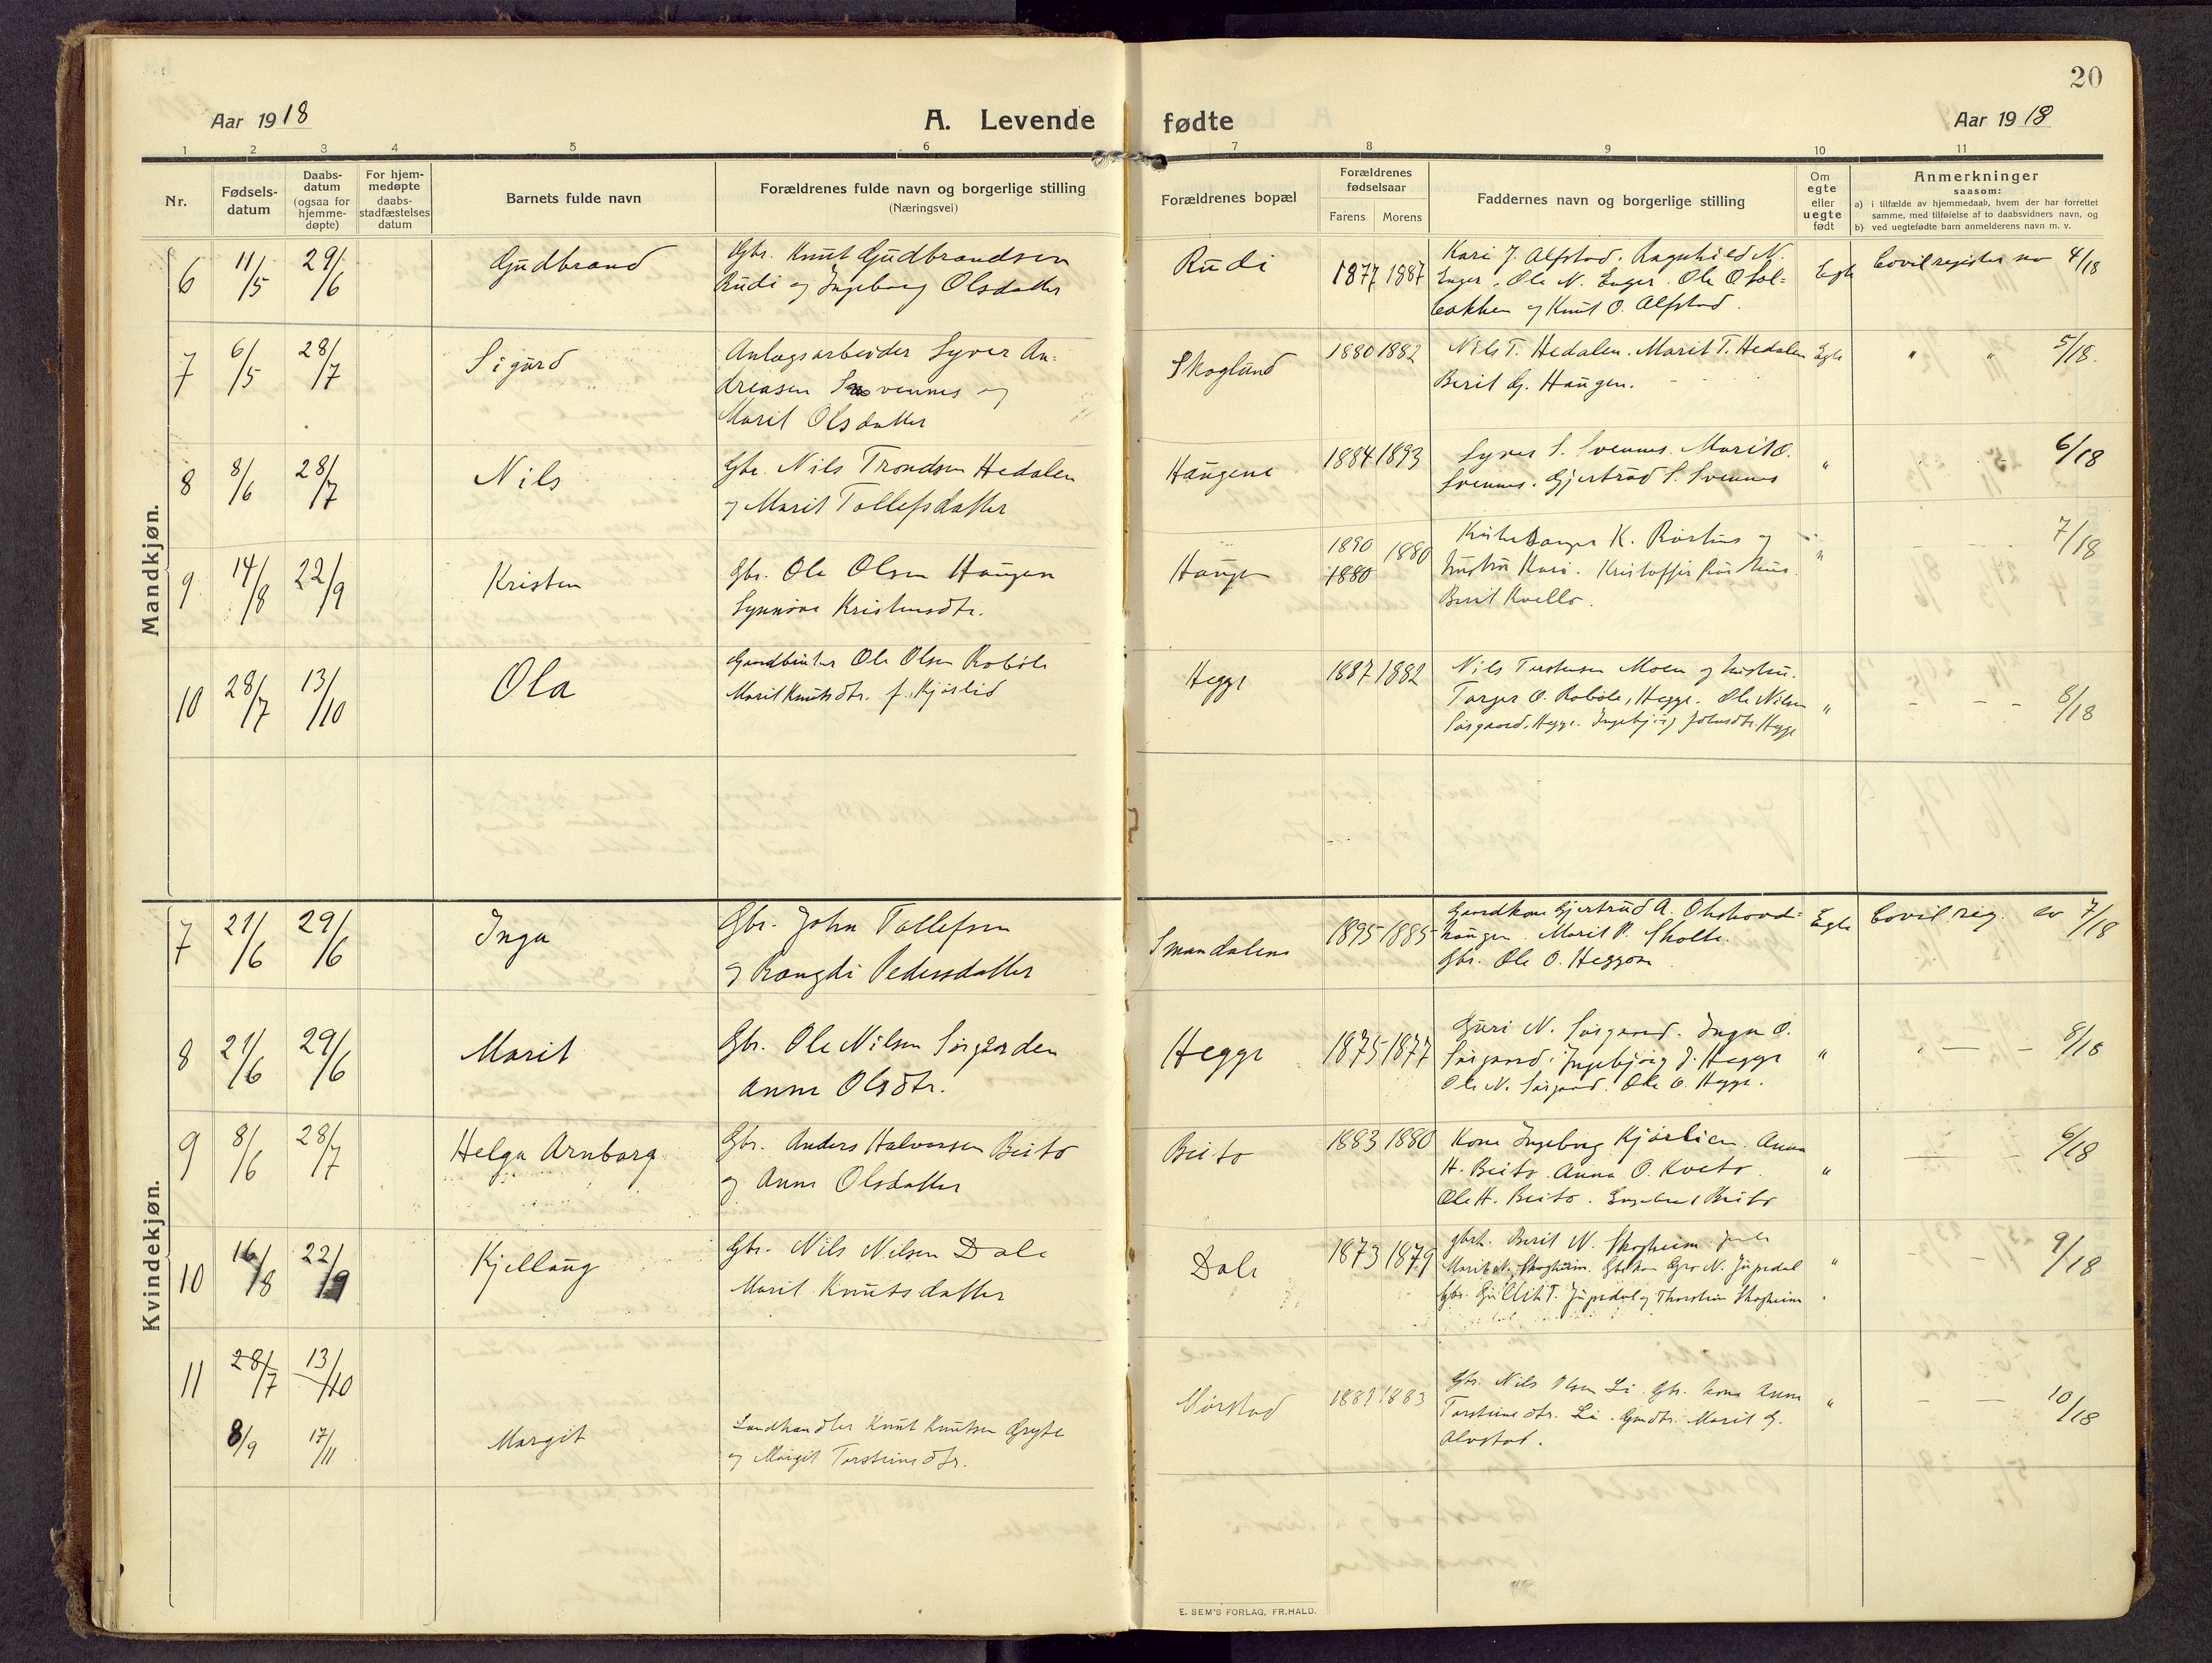 20
Aar 1918
A. Levende fødte
Aar 1918
1 2 3 4 5 6 7 8 9 10 11
Nr.
Fødsels-
datum
Daabs-
datum
(ogsaa for
hjemme-
døpte)
For hjem-
medøpte
daabs-
stadfæstelses
datum
Barnets fulde navn
Forældrenes fulde navn og borgerlige stilling
(Næringsvei)
Forældrenes bopæl
Forældrenes
fødselsaar
Farens Morens
Faddernes navn og borgerlige stilling
Om
egte
eller
uegte
født
Anmerkninger
saasom:
a) i tilfælde av hjemmedaab, hvem der har forrettet
samme, med tilføielse af to daabsvidners navn, og
b) ved uegtefødte barn anmelderens navn m. v.
Mandkjøn.
6 11/5 29/6 Gudbrand
Gbr. Knut Gudbrandsen
Rudi og Ingeborg Olsdatter
Rudi 1877 1887
Kari J. Alfstad. Ragnhild N.
Enger. Ole N. Enger. Ole O Sol=
bakken og Knut O. Alfstad.
Egte Civilregister no 4/18
7 6/5 28/7 Sigurd
Anlægsarbeider Syver An=
dreasen Svennes og
Marit Olsdatter
Skoglund 1880 1882
Nils T. Hedalen. Marit T. Hedalen
Berit G. Haugen.
Egte " " 5/18.
8 8/6 28/7 Nils
Gbr. Nils Trondsen Hedalen
og Marit Tollefsdatter
Haugene 1884 1893
Syver S. Svennes. Marit O.
Svennes. Gjertrud S. Svennes
" 6/18
9 14/8 22/9 Kristen
Gbr. Ole Olsen Haugen
Synnøve Kristensdtr.
Haugen 1890 1880 1880
K. og
hustru Kari. Kristoffer
Berit Kvello.
" 7/18
10 28/7 13/10 Ola
Gaardbruker Ole Olsen Robøle
Marit Knutsdtr. f. Kjørlid
Hegge 1887 1882
Nils Torstensen Moen og hustru.
Torger O. Robøle, Hegge. Ole Nilsen
Sørgaard, Hegge. Ingebjørg Johnsdtr. Hegge
" - - - 8/18
Kvindekjøn.
7 21/6 29/6 Inga
Gbr. John Tollefsen
og Rangdi Pedersdatter
Smaadalene 1895 1885
Gaardkone Gjertrud A. Okshovd=
haugen. Marit P. Skolte.
Gbr. Ole O. Heggom
Egte Civilreg. no 7/18
8 21/6 29/6 Marit
Gbr. Ole Nilsen Sørgarden
Anne Olsdtr.
Hegge 1875 1877
Guri N. Sørgaard. Inga O.
Sørgaard, Ingebjørg J. Hegge
Ole N. Sørgaard. Ole O. Hegge.
" " — - 8/18
9 8/6 28/7 Helga Arnborg
Gbr. Anders Halvorsen Beito
og Anne Olsdatter
Beito 1883 1880
Kone Ingeborg Kjørlien. Anna
H. Beito. Anna O. Kveto.
Ole H. Beito. Engebret Beito
" — - 6/18
10 16/8 22/9 Kjellaug
Gbr. Nils Nilsen Dale
Marit Knutsdatter
Dale 1873 1879
gbrk. Berit N. Skogheim.
Marit N. Skogheim. Gro N. Jupedal
Gbr. Gullik T. Jupedal og Thorstein Skogheim
" — - 9/18
11 28/7 13/10
8/9 17/11 Margit
Landhandler Knut Knutsen Gryte
og Margit Torsteinsdtr.
1883
Gbr. Nils Olsen Li. Gbr. kone Anne
Torsteinsdtr. Li. Gmdtr. Marit G.
Alvstad.
" — — 10/18
E. SEM'S FORLAG, FR.HALD.